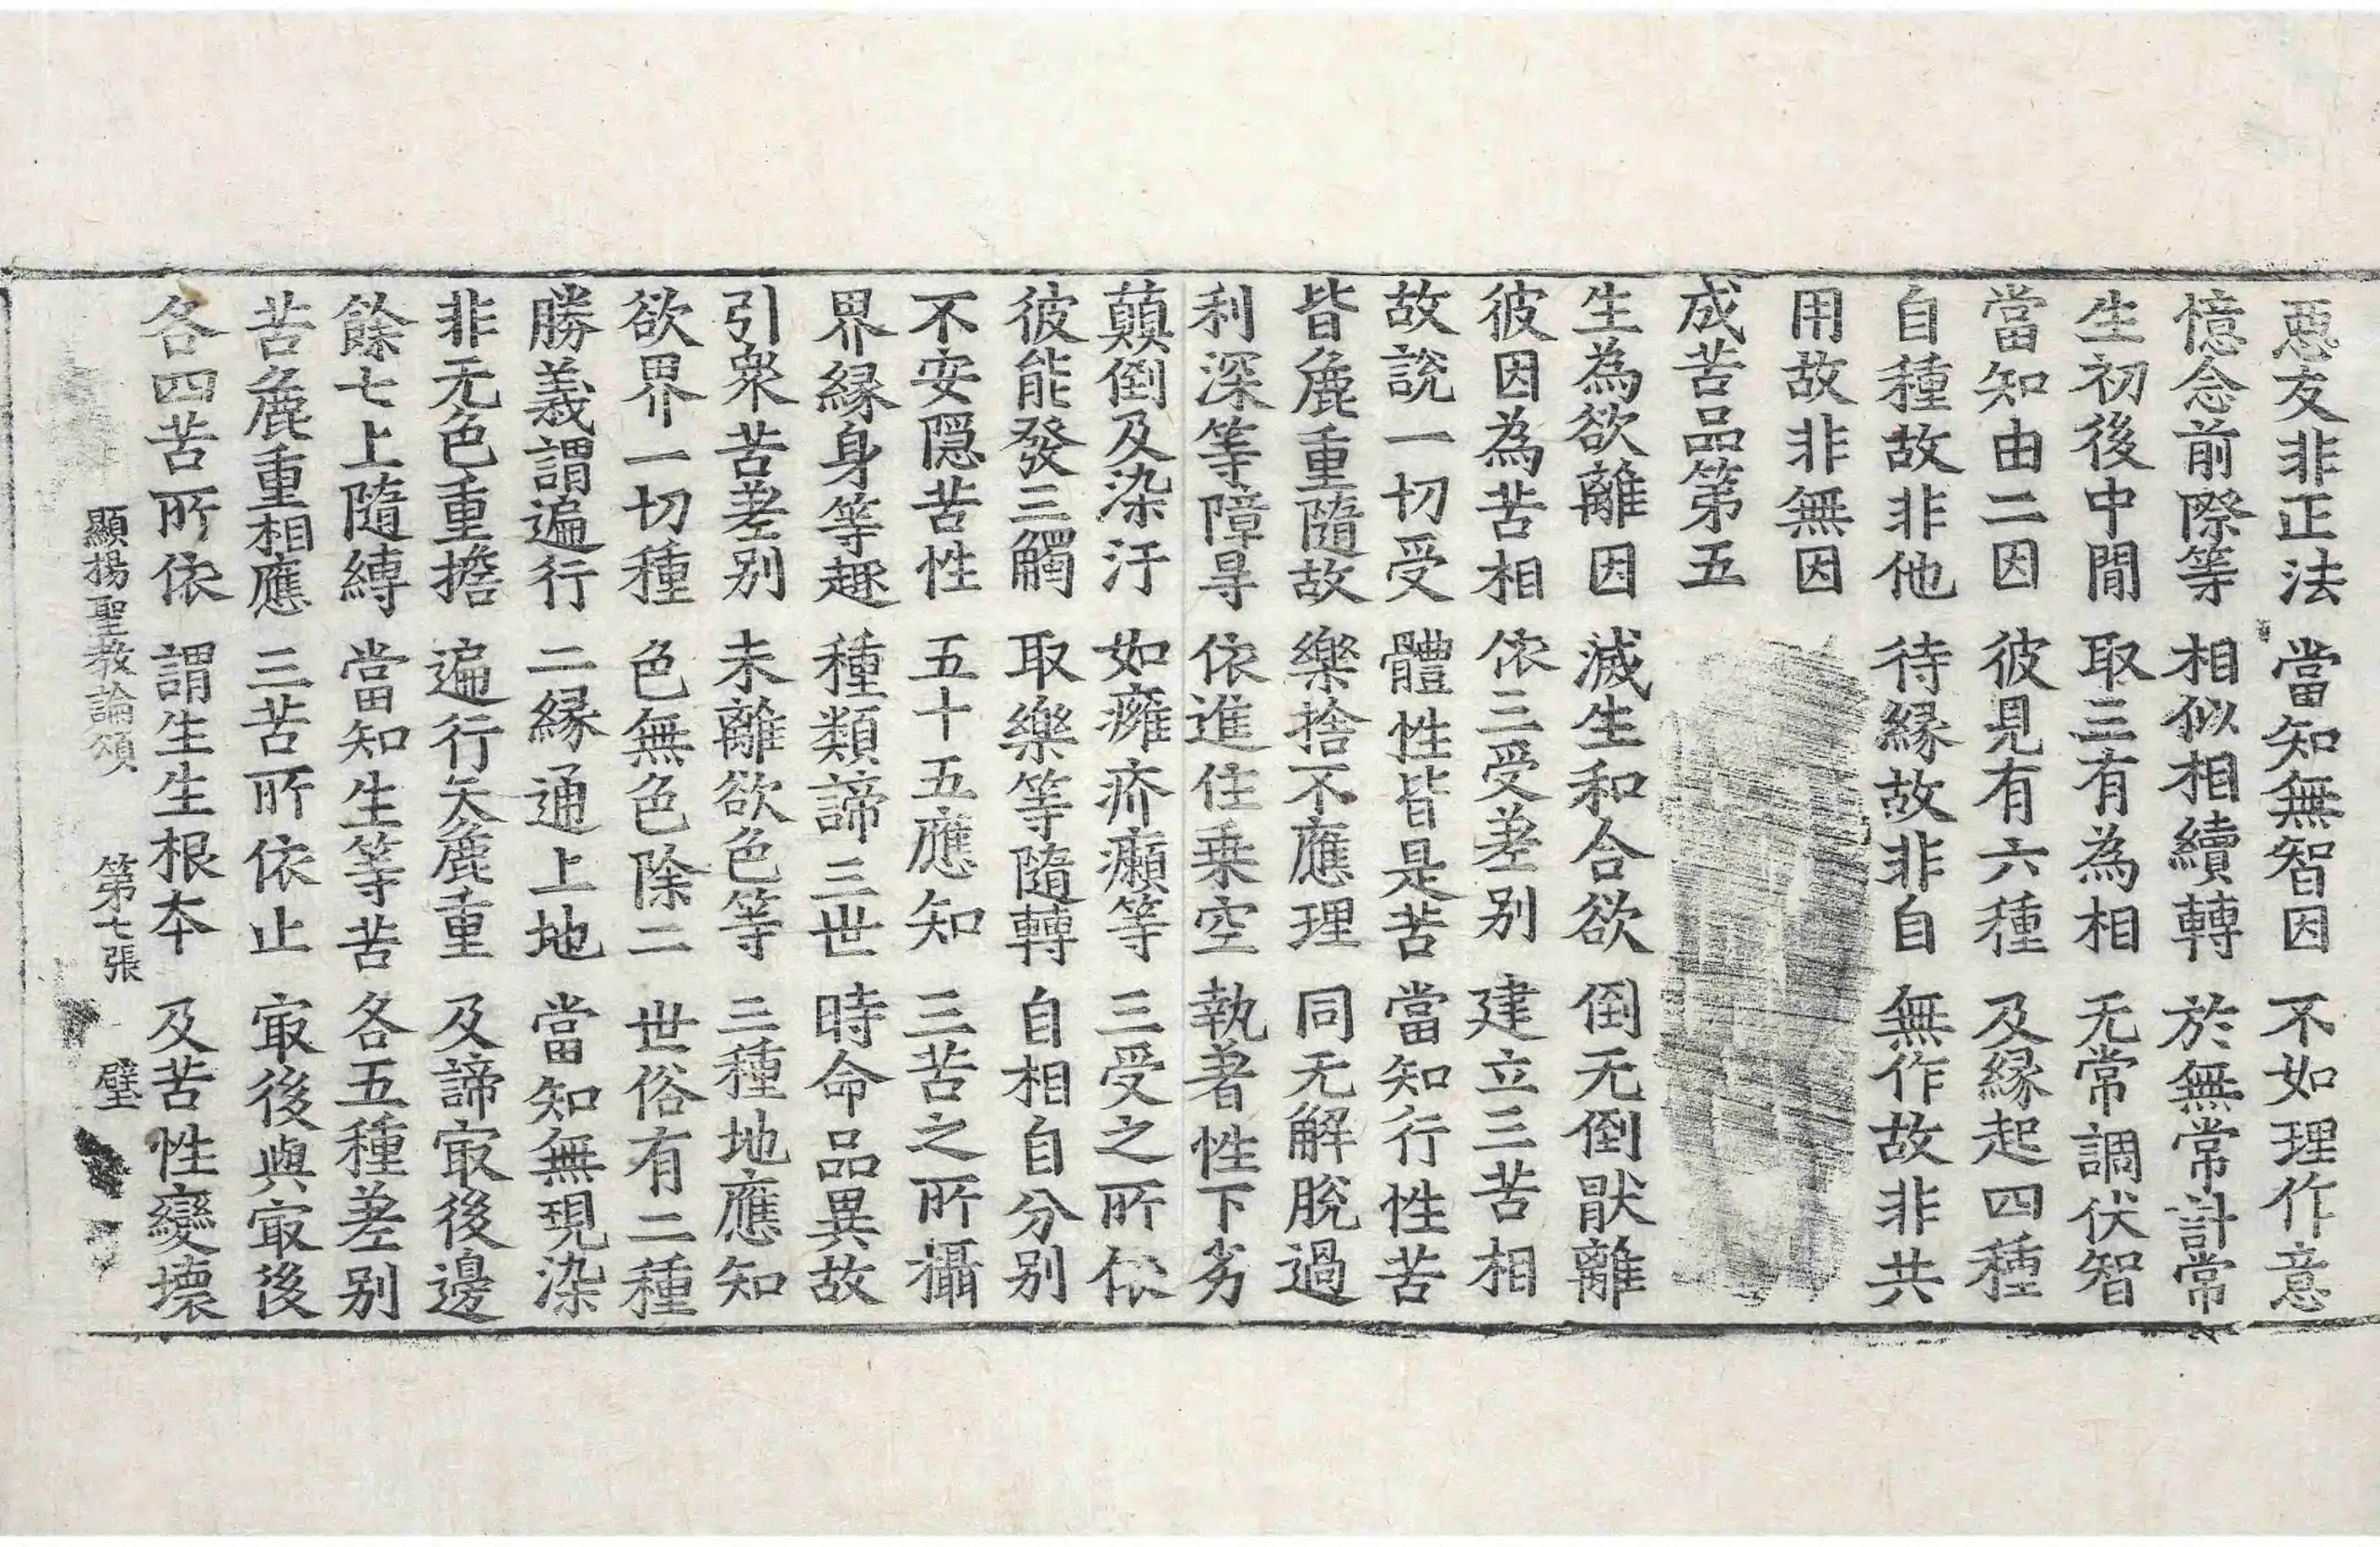 惡友非正法 當知無智因 不如理作意
憶念前際等 相似相續轉 於無常計常
生初後中間 取三有為相 无常調伏智
當知由二因 彼見有六種 及緣起四種
自種故非他 待緣故非自 無作故非共
用故非無因
成苦品第五
生為欲離因 滅生和合欲 倒无倒猒離
彼因為苦相 依三受差別 建立三苦相
故說一切受 體性皆是苦 當知行性苦
皆麁重隨故 樂捨不應理 同无解脫過
利深等障㝵 依進住乗空 執著性下劣
顛倒及染汙 如癰疥癩等 三受之所依
彼能發三觸 取樂等隨轉 自相自分別
不安隱苦性 五十五應知 三苦之所攝
界緣身等趣 種類諦三世 時命品異故
引衆苦差別 未離欲色等 三種地應知
欲界一切種 色無色除二 世俗有二種
勝義謂遍行 二緣通上地 當知無現染
非无色重擔 遍行矢麁重 及諦㝡後邊
餘七上隨縛 當知生等苦 各五種差別
苦麁重相應 三苦所依止 㝡後與㝡後
各四苦所依 謂生生根本 及苦性變壞
顯揚聖教論頌 第七張 璧